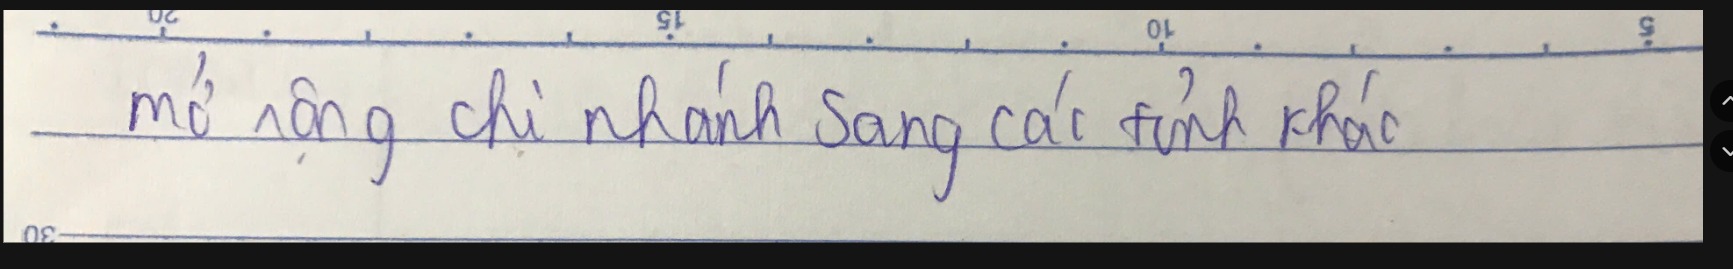 20 15 10 5
mở rộng chi nhánh sang các tỉnh khác
30